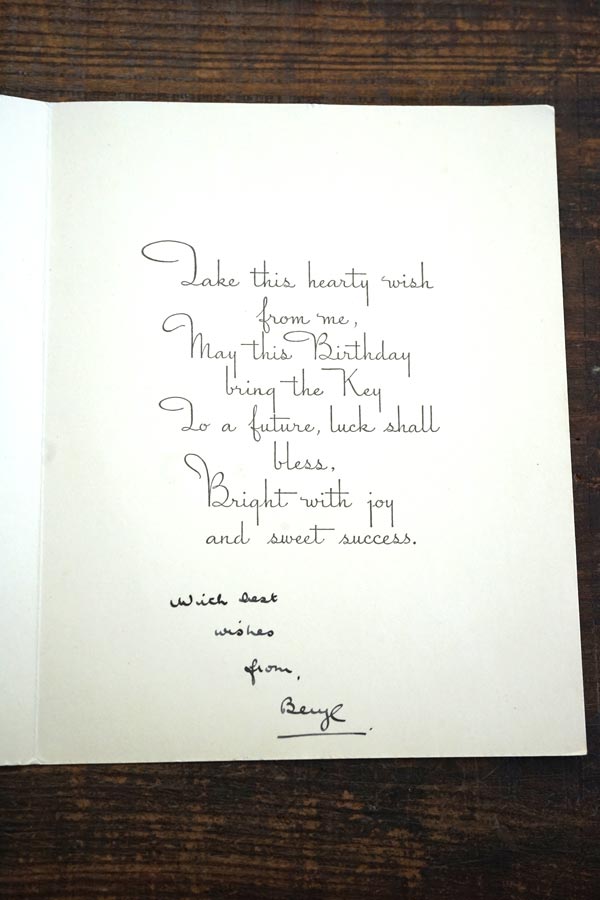 Take this hearty wish
from me,
May this Birthday
bring the Key
To a future, luck shall
bless,
Bright with joy
and sweet success.
With best
wishes
from,
Beryl.